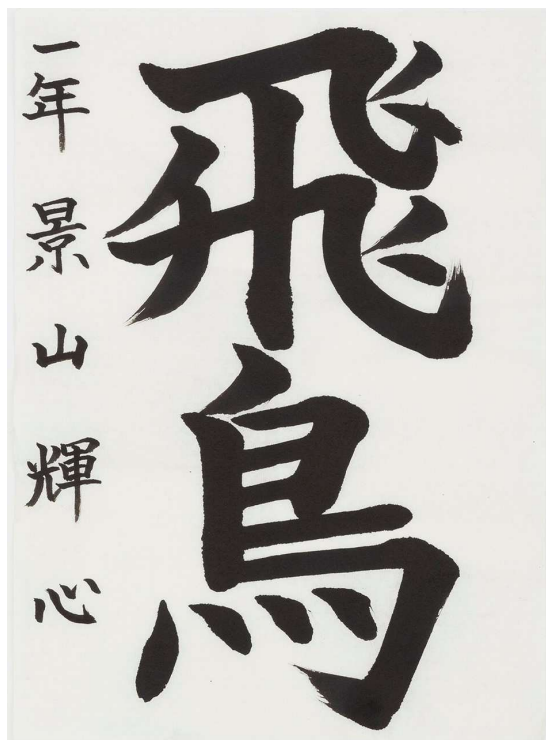 飛鳥
一年 景山輝心